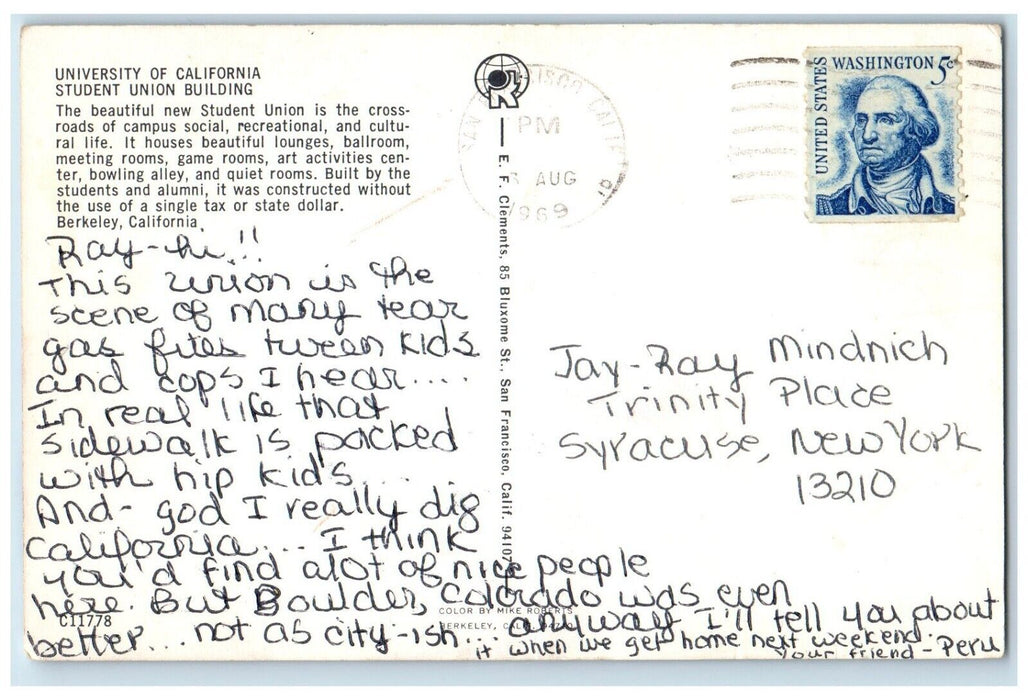 UNIVERSITY OF CALIFORNIA
STUDENT UNION BUILDING
The beautiful new Student Union is the cross-
roads of campus social, recreational, and cultu-
ral life. It houses beautiful lounges, ballroom,
meeting rooms, game rooms, art activities cen-
ter, bowling alley, and quiet rooms. Built by the
students and alumni, it was constructed without
the use of a single tax or state dollar.
Berkeley, California
Ray-hi!!
This union is the
scene of many tear
gas fites tween kids
and cops I hear....
In real life that
sidewalk is packed
with hip kids....
And- god I really dig
California... I think
you'd find alot of nice people
here. But Boulder, Colorado was even
better... not as city-ish... anyway I'll tell you about
it when we get home next weekend.
Your friend - Peru
C11778
COLOR BY MIKE ROBERTS
BERKELEY, CALIF.
E. F. Clements, 85 Bluxome St., San Francisco, Calif. 94107
R
SAN CISCO CALIF
PM
AUG
1969
UNITED STATES
WASHINGTON 5c
Jay-Ray Mindnich
Trinity Place
Syracuse, New York
13210